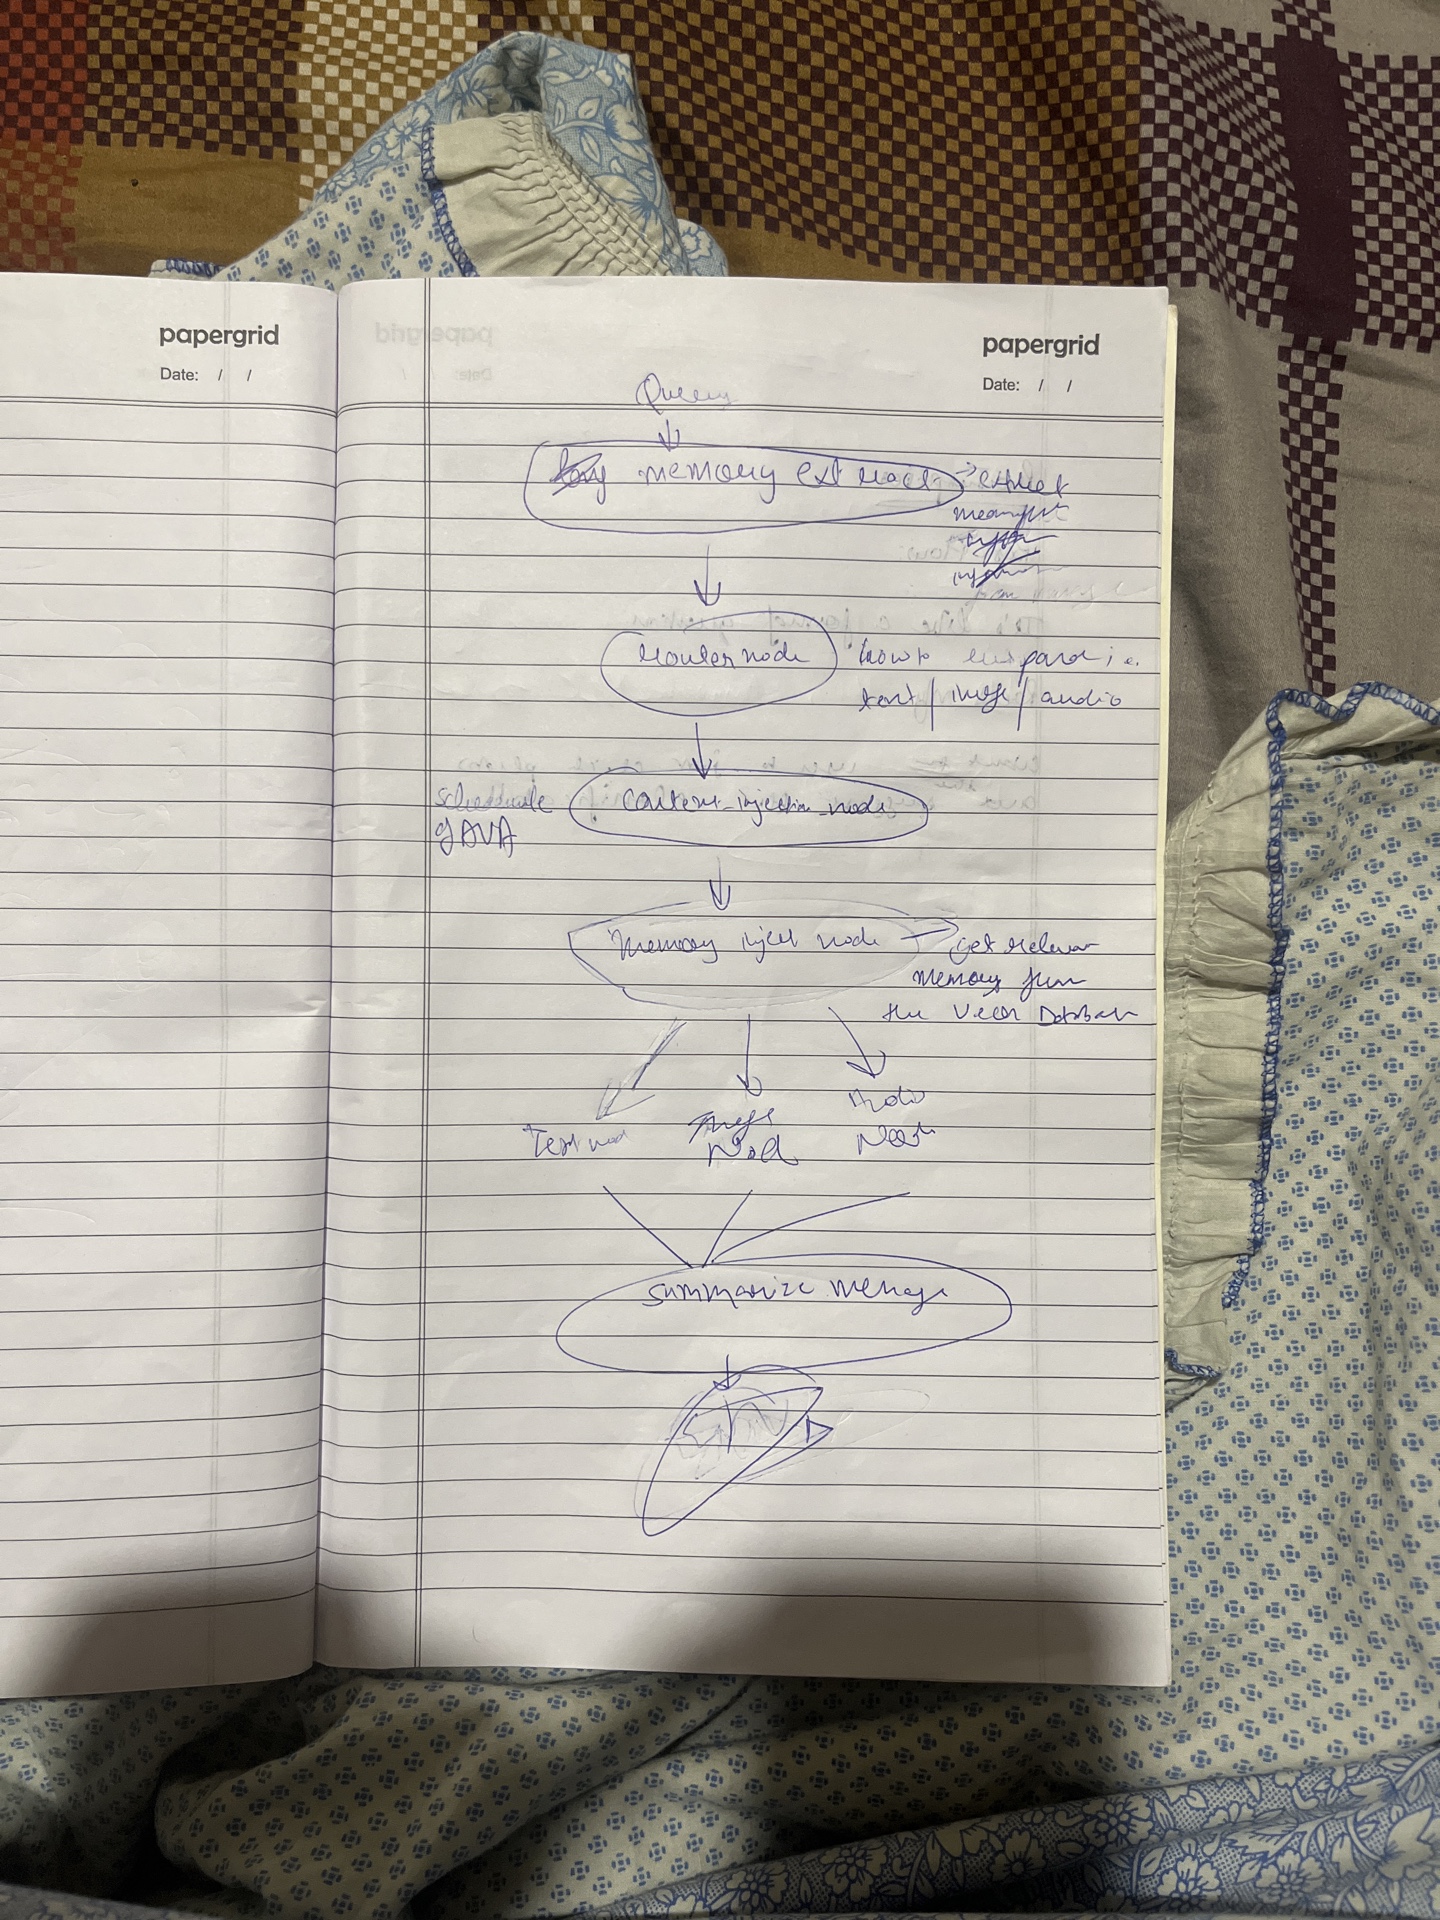 papergrid
Date: / /
papergrid
Date: / /
Query
memory extract → extract
router node how to respond i.e.
text / image / audio
Schedule context_injection_node
Memory inject node → get relevant
memory from
the Vector Database
Text node Image Node Audio Node
summarize message